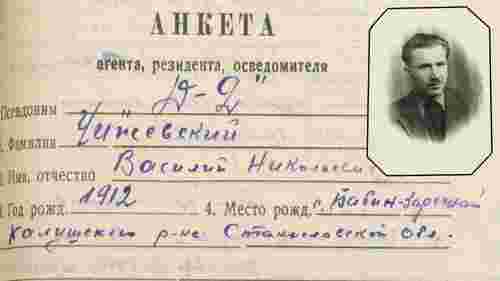 АНКЕТА
агента, резидента, осведомителя
Псевдоним "Д-2"
. Фамилия Чижевский
. Имя, отчество Василий Николаевич
Год рожд. 1912 4. Место рожд. Бабин-Заречный
Калушского р-на Станиславской обл.